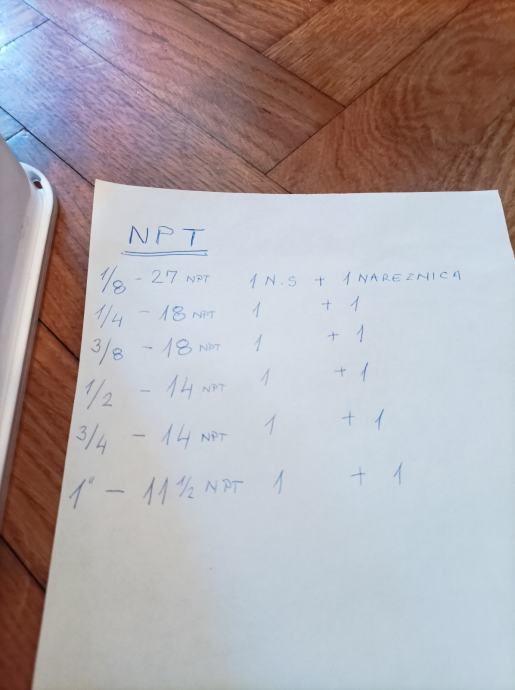 NPT
1/8 - 27 NPT 1 N.S + 1 NAREZNICA
1/4 - 18 NPT 1 + 1
3/8 - 18 NPT 1 + 1
1/2 - 14 NPT 1 + 1
3/4 - 14 NPT 1 + 1
1" - 11 1/2 NPT 1 + 1